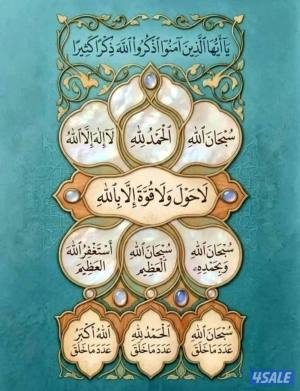 يَا أَيُّهَا الَّذِينَ آمَنُوا اذْكُرُوا اللَّهَ ذِكْرًا كَثِيرًا
سُبْحَانَ اللهِ
الْحَمْدُ لِلَّهِ
لَا إِلَهَ إِلَّا اللهُ
لَا حَوْلَ وَلَا قُوَّةَ إِلَّا بِاللَّهِ
سُبْحَانَ اللهِ
وَبِحَمْدِهِ
سُبْحَانَ اللهِ
الْعَظِيمِ
أَسْتَغْفِرُ اللهَ
الْعَظِيمَ
سُبْحَانَ اللهِ
عَدَدَ مَا خَلَقَ
الْحَمْدُ لِلَّهِ
عَدَدَ مَا خَلَقَ
اللهُ أَكْبَرُ
عَدَدَ مَا خَلَقَ
4SALE